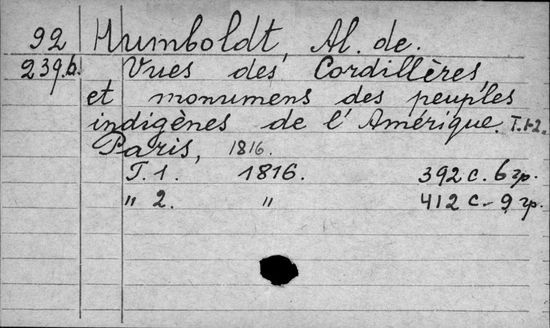 92 Humboldt, Al. de.
239.b. Vues des Cordillères,
et monumens des peuples
indigènes de l'Amérique. T.1-2.
Paris, 1816.
T. 1. 1816. 392 с. 6 гр.
" 2. " 412 с. - 9 гр.